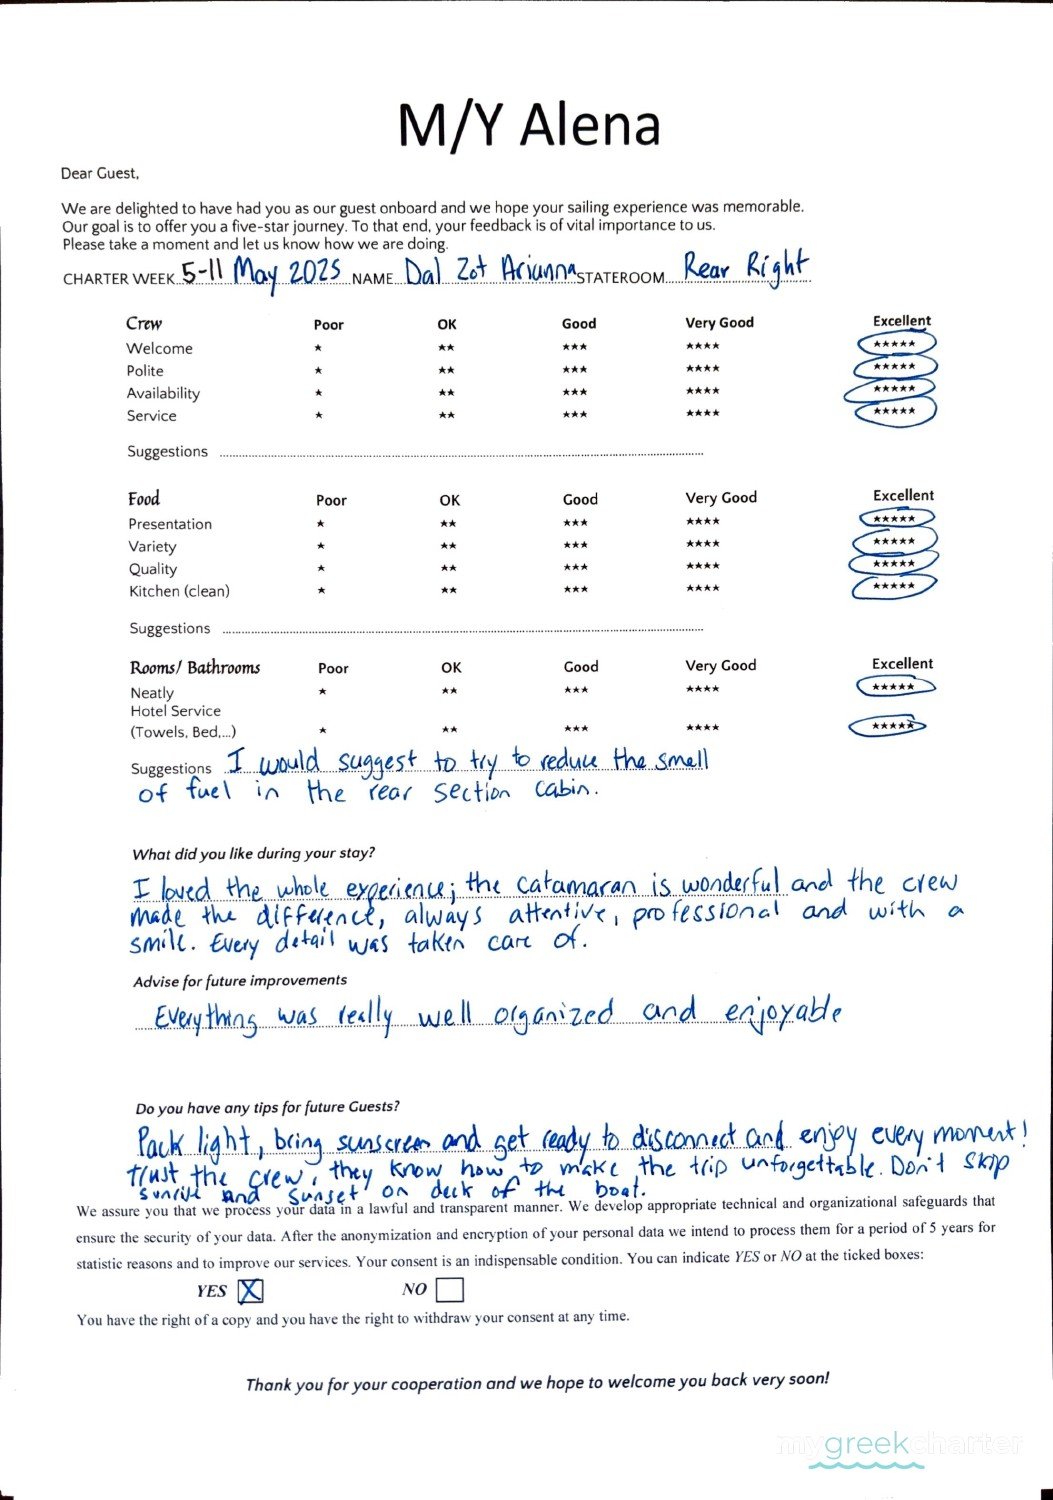 M/Y Alena
Dear Guest,
We are delighted to have had you as our guest onboard and we hope your sailing experience was memorable.
Our goal is to offer you a five-star journey. To that end, your feedback is of vital importance to us.
Please take a moment and let us know how we are doing.
CHARTER WEEK 5-11 May 2025 NAME Dal Zot Arianna STATEROOM Rear Right
Crew Poor OK Good Very Good Excellent
Welcome ★ ★★ ★★★ ★★★★ ★★★★★
Polite ★ ★★ ★★★ ★★★★ ★★★★★
Availability ★ ★★ ★★★ ★★★★ ★★★★★
Service ★ ★★ ★★★ ★★★★ ★★★★★
Suggestions
Food Poor OK Good Very Good Excellent
Presentation ★ ★★ ★★★ ★★★★ ★★★★★
Variety ★ ★★ ★★★ ★★★★ ★★★★★
Quality ★ ★★ ★★★ ★★★★ ★★★★★
Kitchen (clean) ★ ★★ ★★★ ★★★★ ★★★★★
Suggestions
Rooms/ Bathrooms Poor OK Good Very Good Excellent
Neatly ★ ★★ ★★★ ★★★★ ★★★★★
Hotel Service
(Towels, Bed,...) ★ ★★ ★★★ ★★★★ ★★★★★
Suggestions I would suggest to try to reduce the smell
of fuel in the rear section cabin.
What did you like during your stay?
I loved the whole experience; the catamaran is wonderful and the crew
made the difference, always attentive, professional and with a
smile. Every detail was taken care of.
Advise for future improvements
Everything was really well organized and enjoyable
Do you have any tips for future Guests?
Pack light, bring sunscreen and get ready to disconnect and enjoy every moment!
Trust the crew, they know how to make the trip unforgettable. Don't skip
sunrise and sunset on deck of the boat.
We assure you that we process your data in a lawful and transparent manner. We develop appropriate technical and organizational safeguards that
ensure the security of your data. After the anonymization and encryption of your personal data we intend to process them for a period of 5 years for
statistic reasons and to improve our services. Your consent is an indispensable condition. You can indicate YES or NO at the ticked boxes:
YES X NO
You have the right of a copy and you have the right to withdraw your consent at any time.
Thank you for your cooperation and we hope to welcome you back very soon!
mygreekcharter